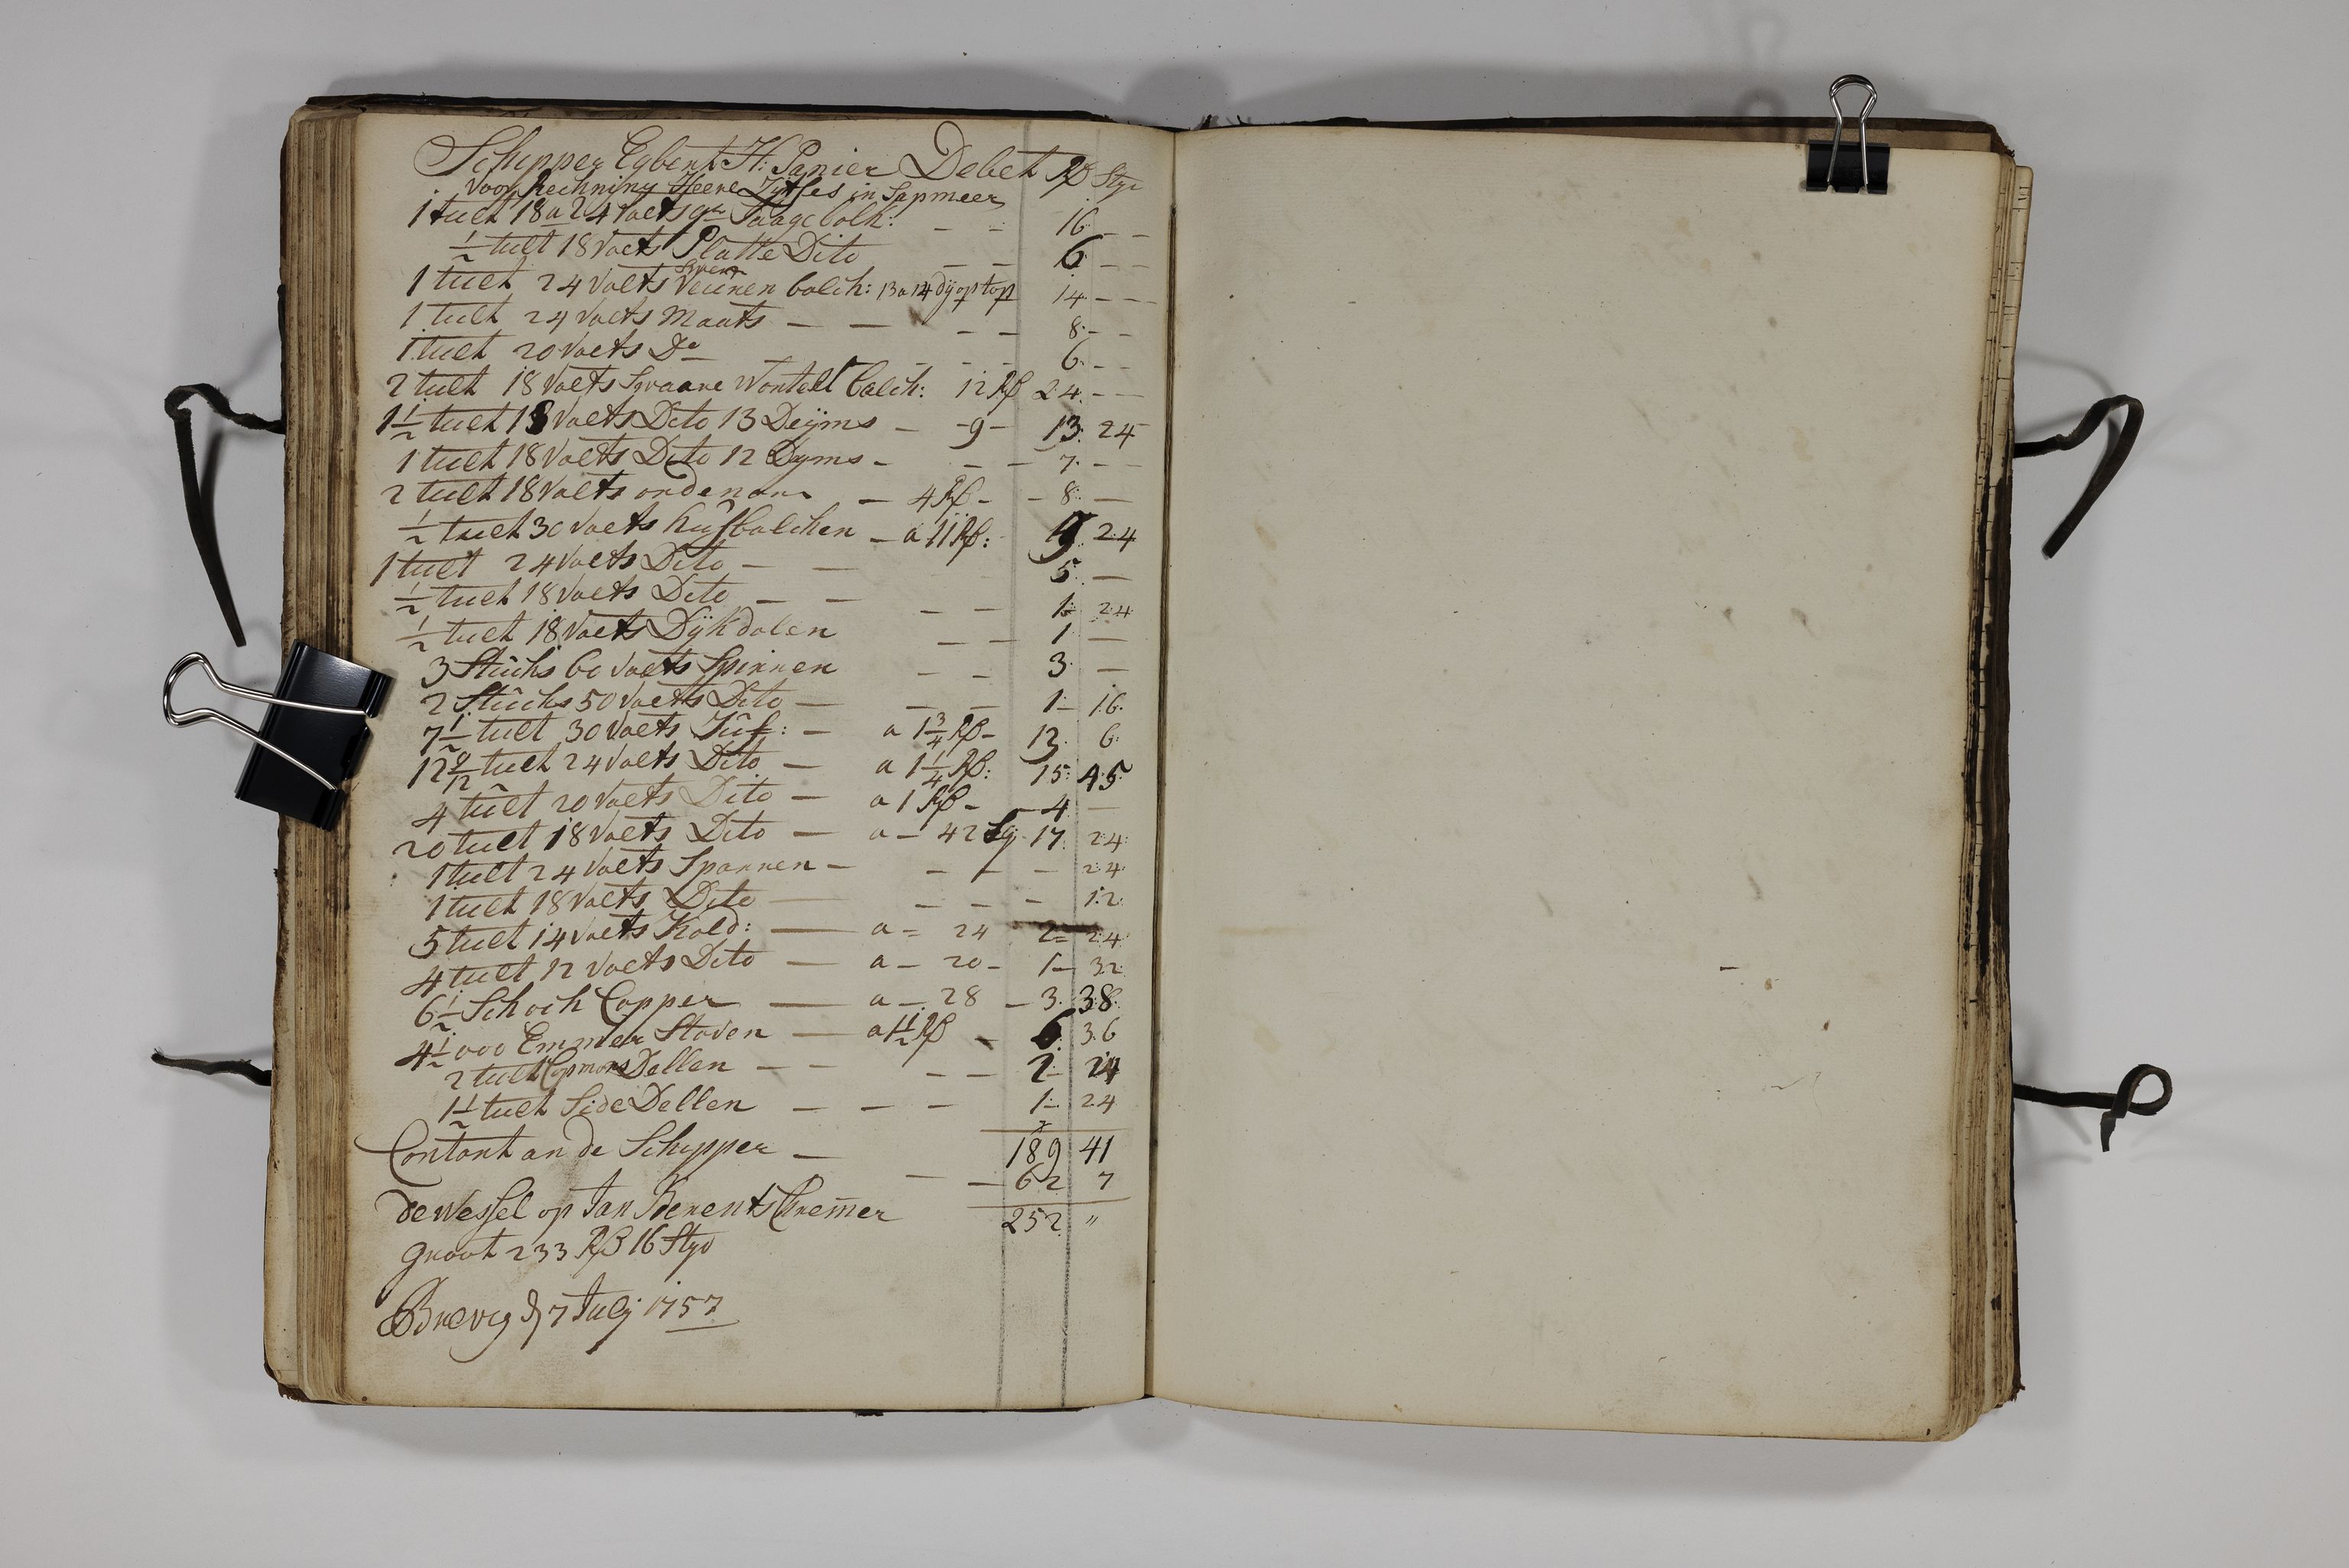 Schipper Egbert H: Panier Debet Rß Styr
Voor Rechning Heere Zijtses in Sapmeer
1 tuelt 18 a 24 Voets gr Saage bolk: — — 16 — —
½ tuelt 18 Voets Platte Dito — — 6 — —
1 tuelt 24 Voets Svern Veuren balch: 13 a 14 dÿ op top 14 — —
1 tuelt 24 Voets Maats — — — — 8 — —
1 tuelt 20 Voets Do — — — 6 — —
2 tuelt 18 Voets Svaare Wontell balch: 12 Rß 24 — —
1½ tuelt 18 Voets Dito 13 Deÿms — 9 — 13 24
1 tuelt 18 Voets Dito 12 Dyms — — — 7 — —
2 tuelt 18 Voets ordenarr — 4 Rß — — 8 —
½ tuelt 30 Voets Kufbalchen — a 11 Rß: 9 24
1 tuelt 24 Voets Dito — — 5 —
½ tuelt 18 Voets Dito — — — — 1 24
½ tuelt 18 Voets Dÿkdalen — — 1 —
3 Stüchs 60 Voets Spirren — — 3 —
2 Stüchs 50 Voets Dito — — — 1 16
7½ tuelt 30 Voets Jüf: — a 1¾ Rß — 13 6
12 9/12 tuelt 24 Voets Dito — a 1¼ Rß: 15 45
4 tuelt 20 Voets Dito — a 1 Rß — 4 —
20 tuelt 18 Voets Dito — a — 42 Sg 17 24
1 tuelt 24 Voets Sparren — — — — 24
1 tuelt 18 Voets Dito — — — — 12
5 tuelt 14 Voets Kold: — a = 24 2 = 24
4 tuelt 12 Voets Dito — a — 20 — 1 — 32
6½ Schoch Copper — a — 28 — 3 38
4½ 000 Emmer Staven — a 1½ Rß — 6 36
2 tuelt Copmans Dellen — — — — 2 — 24
1½ tuelt Side Dellen — — — 1 — 24
189 41
Contant an de Schipper — — — 62 7
252 "
de Wessel op Jan Berents Cremer
groot 233 Rß 16 Styv
Brevig d 7 Julÿ 1757